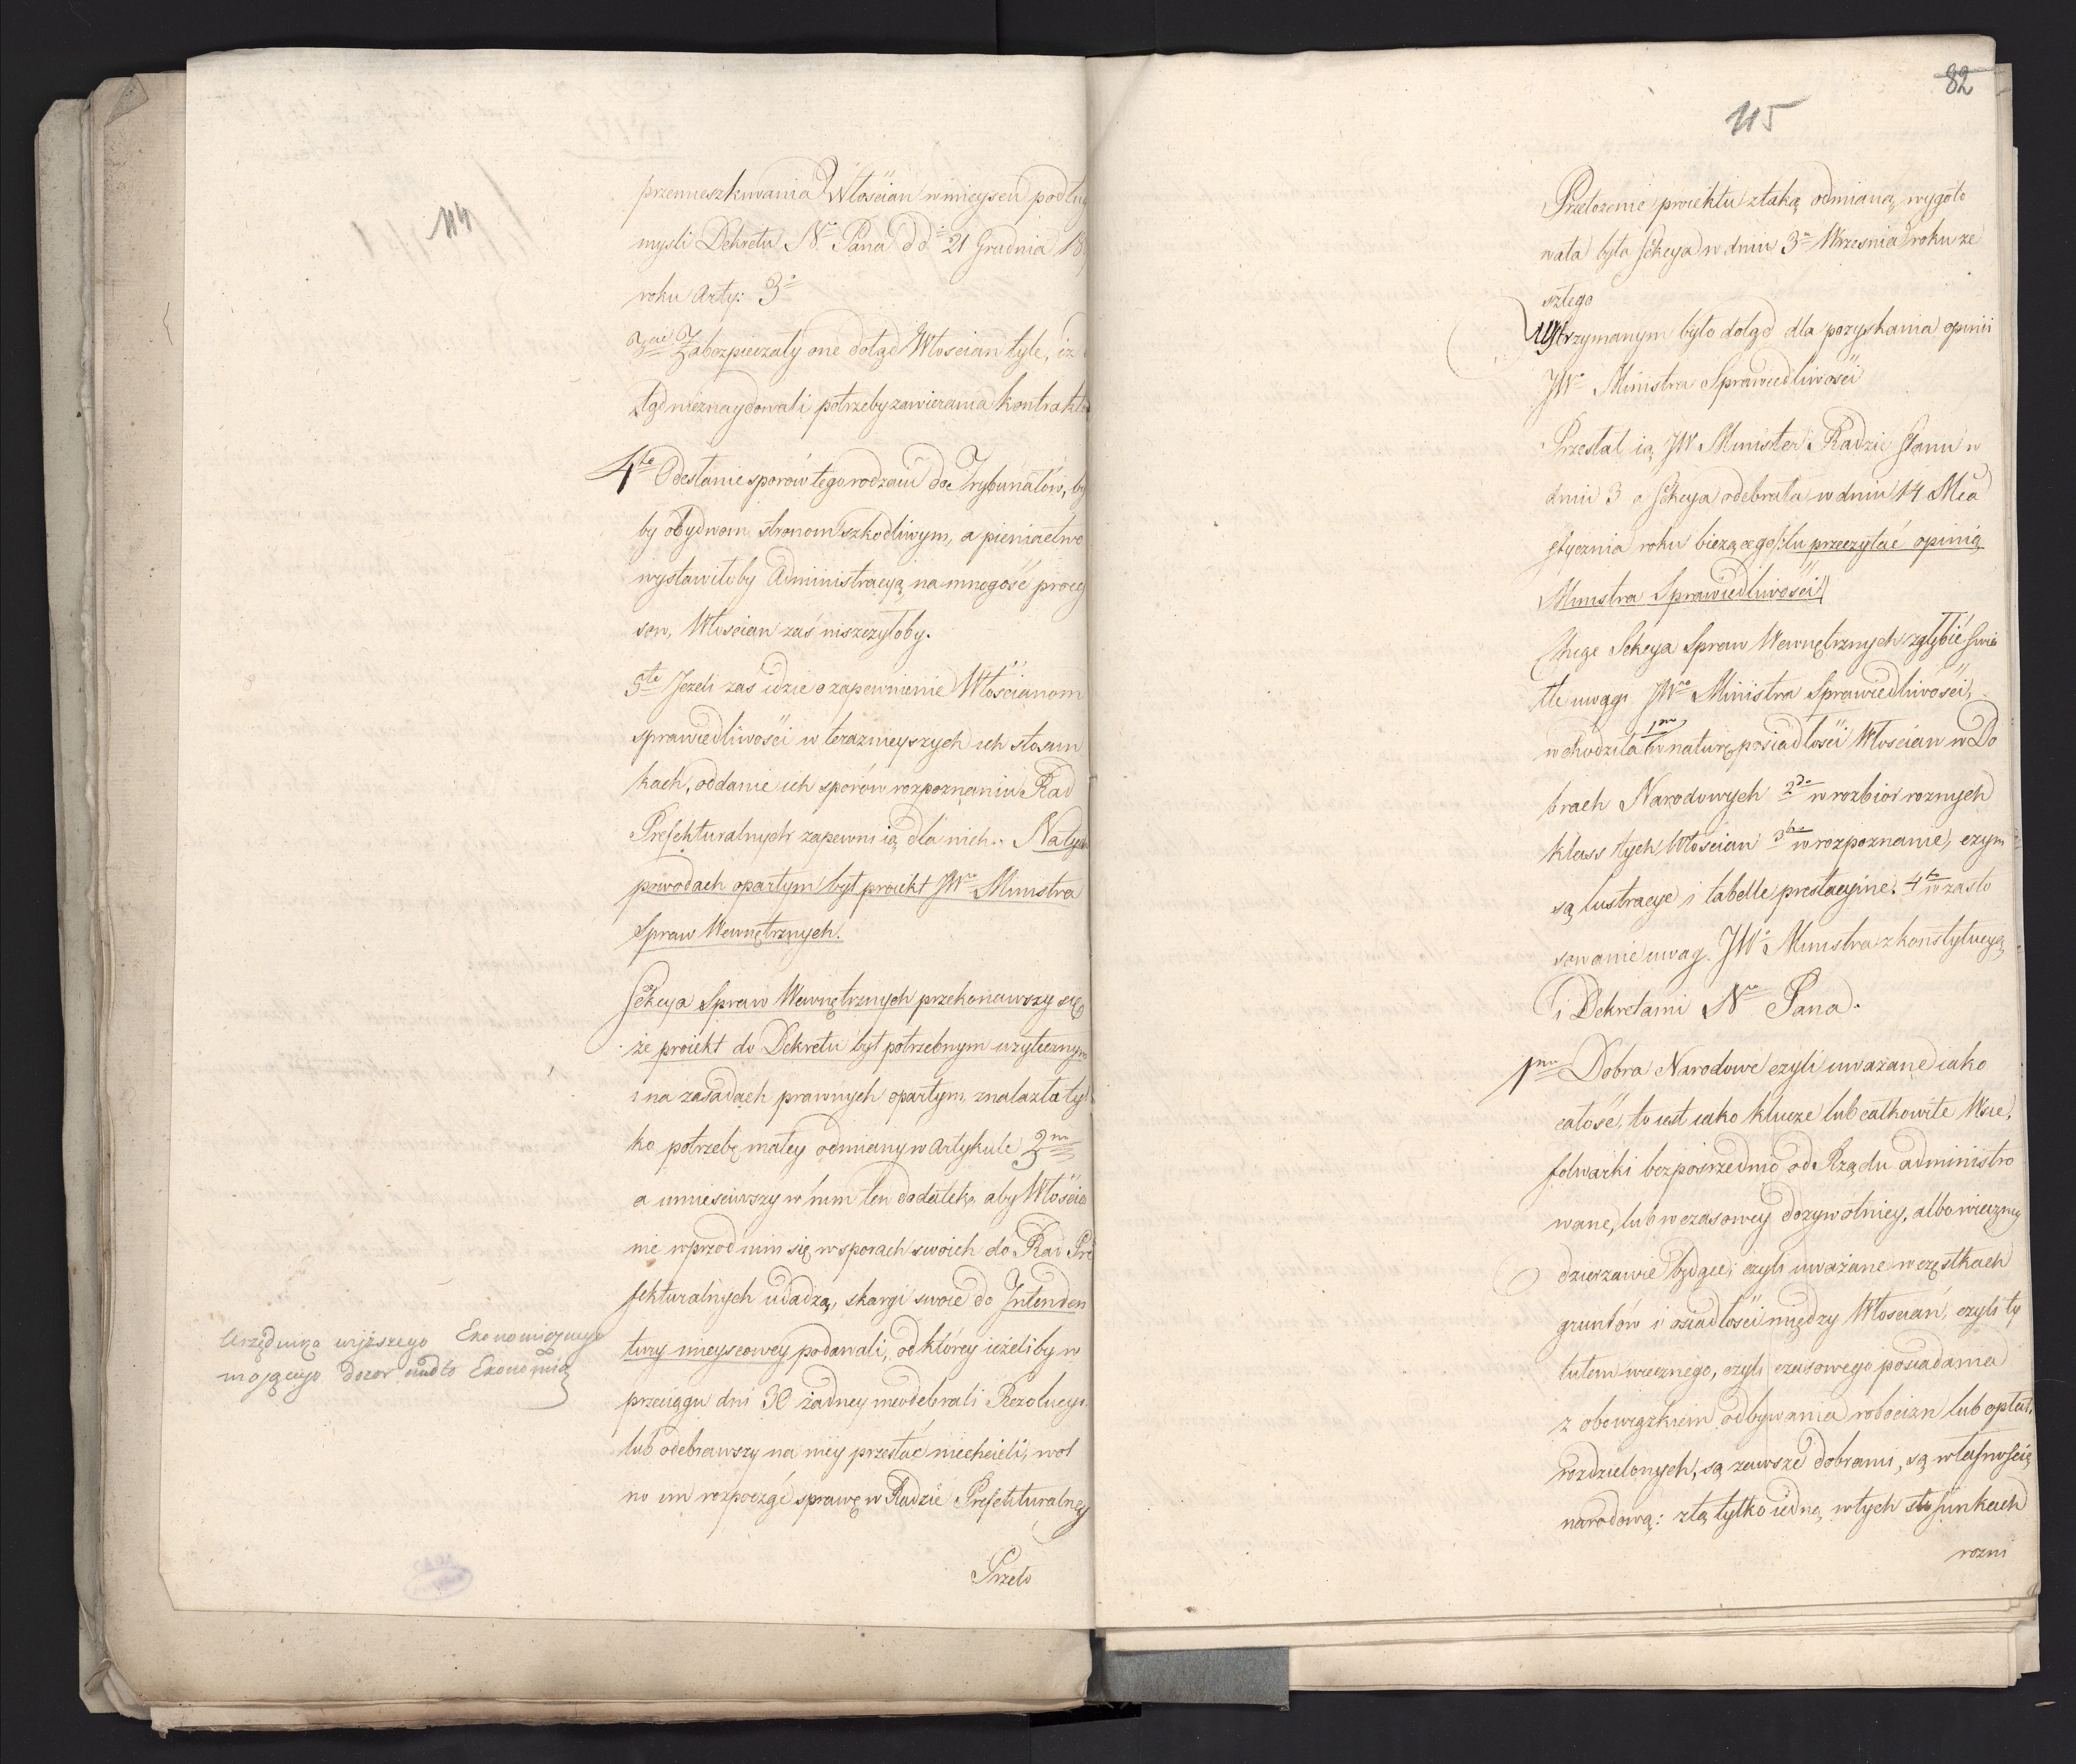 114
przemieszkiwania Włościan w mieyscu podług
mysli Dekretu N. Pana dd: 21 Grudnia 18
roku Arty: 3°
3cie Zabezpieczały one dotąd Włościan tyle, iż
ztąd nieznaydowali potrzeby zawierania kontraktu
4te Odesłanie sporów tego rodzaiu do Trybunałów, by
by obydwom stronom szkodliwym, a pieniactwo
wystawiłoby Administracyą na mnogość proces
sow, Włościan zaś niszczyłoby.
5te Jeżeli zaś idzie o zapewnienie Włościanom
sprawiedliwości w terazneyszych ich stosun
kach, oddanie ich sporów rozpoznaniu Rad
Prefekturalnych zapewni ią dla nich. Na tych
powodach opartym był proiekt JWo Ministra
Spraw Wewnętrznych.
Sekcya Spraw Wewnętrznych przekonawszy się
że proiekt do Dekretu był potrzebnym użytecznym
i na zasadach prawnych opartym, znalazła tyl
ko potrzebę małey odmiany w Artykule 3m
a umieściwszy w nim ten dodatek, aby Włościa
nie wprzod nim się w sporach swoich do Rad Pre
fekturalnych udadzą, skargi swoie do Intenden
tury mieyscowey podawali, od którey ieżeliby w
przeciągu dni 30 żadney nieodebrali Rezolucyi
lub odebrawszy na niey przestać niechcieli, wol
no im rozpocząć sprawę w Radzie Prefekturalney
Przeło
Urzędnika wyższego Ekonomicznego
mającego dozor nad tą Ekonomią
82
115
Przełożenie proiektu z taką odmianą, wygoto
wała była Sekcya w dniu 3° Wrzesnia roku ze
szłego
Wstrzymanym było dotąd dla pozyskania opinii
JWo Ministra Sprawiedliwości
Przesłał ią JW Minister Radzie Stanu w
dniu 3 a Sekcya odebrała w dniu 14 Mca
Stycznia roku bieżącego /: tu przeczytać opinią
Ministra Sprawiedliwości /
Chcąc Sekcya Spraw Wewnętrznych zgłębić świa
tłe uwagi JWo Ministra Sprawiedliwości,
wchodziła 1mo w naturę posiadłości Włościan w Do
brach Narodowych 2do w rozbiór roznych
klass tych Włościan 3tio w rozpoznanie, czym
są lustracye i tabelle prestacyine. 4to w zasto
sowanie uwag JWo Ministra z konstytucyą
i Dekretami No Pana.
1mo Dobra Narodowe czyli uważane iako
całość, to iest iako klucze lub całkowite Wsie,
folwarki bezpośrzednio od Rządu administro
wane, lub w czasowey dożywotniey, albo wieczney
dzierżawie będące; czyli uważane w cząstkach
gruntów i osiadłości między Włościan, czyli ty
tułem wiecznego, czyli czasowego posiadania
z obowiązkiem odbywania robocizn lub opłat,
rozdzielonych, są zawsze dobrami, są własnością
narodową: z tą tylko iedną w tych stosunkach
rozni